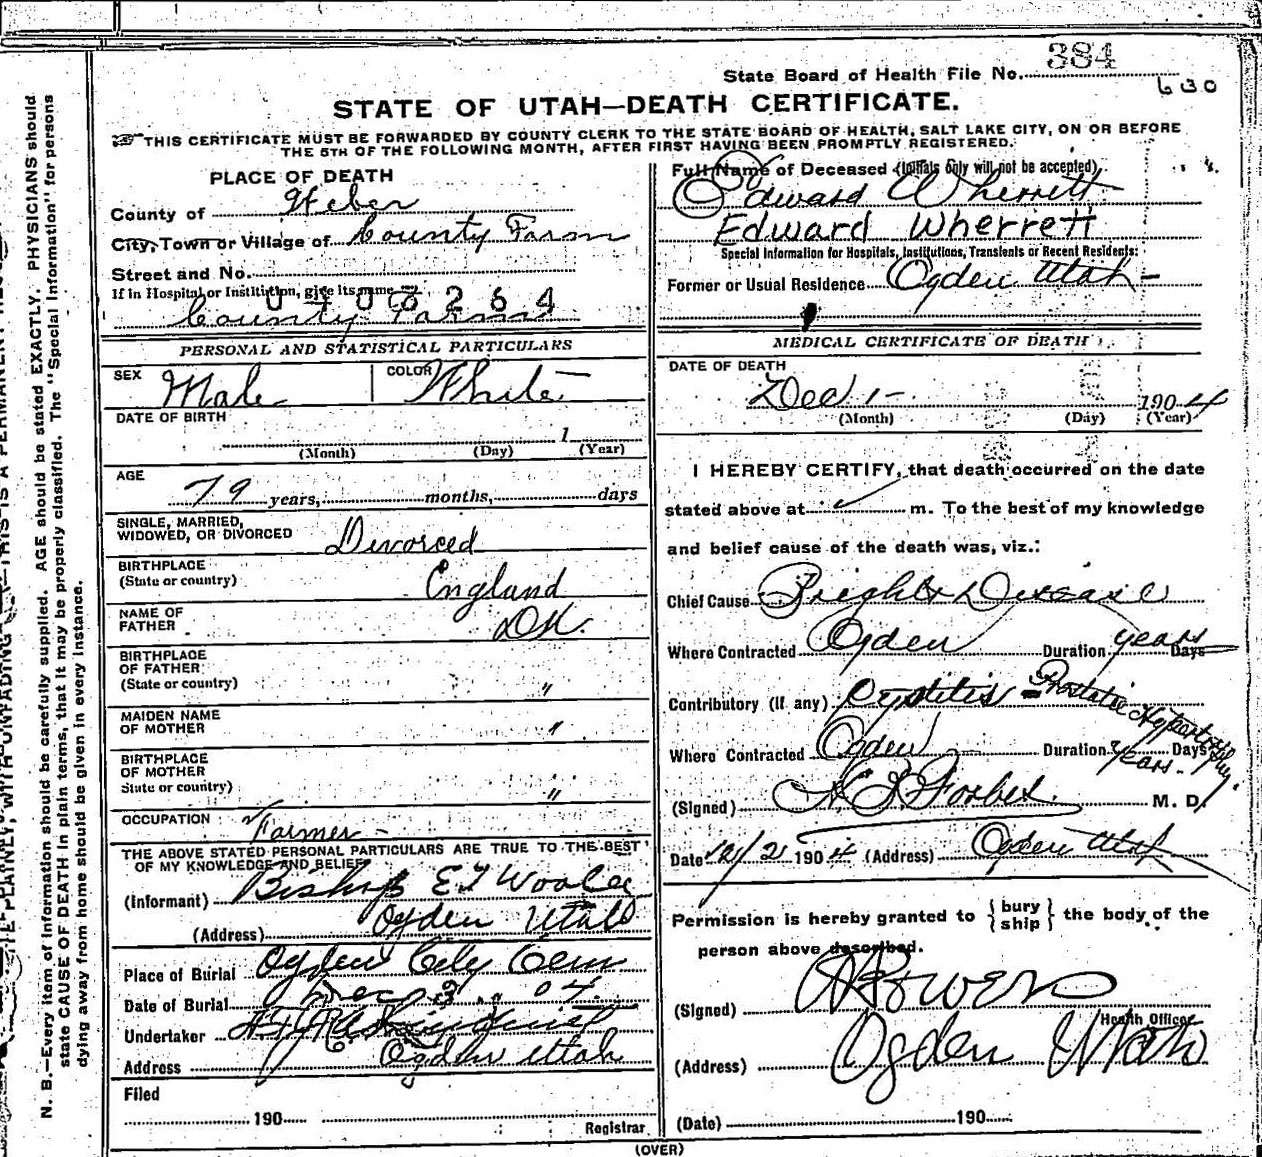 State Board of Health File No. 384
630
STATE OF UTAH—DEATH CERTIFICATE.
THIS CERTIFICATE MUST BE FORWARDED BY COUNTY CLERK TO THE STATE BOARD OF HEALTH, SALT LAKE CITY, ON OR BEFORE
THE 5TH OF THE FOLLOWING MONTH, AFTER FIRST HAVING BEEN PROMPTLY REGISTERED.
PLACE OF DEATH
County of Weber
City, Town or Village of County Farm
Street and No.
If in Hospital or Institition, give its name
0408264
County Farm
PERSONAL AND STATISTICAL PARTICULARS
SEX Male COLOR White
DATE OF BIRTH
1
(Month) (Day) (Year)
AGE
79 years, months, days
SINGLE, MARRIED,
WIDOWED, OR DIVORCED Divorced
BIRTHPLACE
(State or country) England
NAME OF
FATHER DK.
BIRTHPLACE
OF FATHER
(State or country) "
MAIDEN NAME
OF MOTHER "
BIRTHPLACE
OF MOTHER
State or country) "
OCCUPATION Farmer
THE ABOVE STATED PERSONAL PARTICULARS ARE TRUE TO THE BEST
OF MY KNOWLEDGE AND BELIEF
(Informant) Bishop E T Woolee
(Address) Ogden Utah
Place of Burial Ogden City Cem
Date of Burial Dec 3 04.
Undertaker
Address Ogden Utah
Filed
190
Registrar
Full Name of Deceased (Initials only will not be accepted)
Edward Wherrett
Edward Wherrett
Special Information for Hospitals, Institutions, Transients or Recent Residents:
Former or Usual Residence Ogden Utah
MEDICAL CERTIFICATE OF DEATH
DATE OF DEATH
Dec 1 1904
(Month) (Day) (Year)
I HEREBY CERTIFY, that death occurred on the date
stated above at m. To the best of my knowledge
and belief cause of the death was, viz.:
Chief Cause Brights Disease
Where Contracted Ogden Duration years Days
Contributory (If any) Cystitis - Prostatic Hypertrophy
Where Contracted Ogden Duration ? years. Days
(Signed) Forbes. M. D.
Date 12/2 1904 (Address) Ogden Utah
Permission is hereby granted to {bury ship} the body of the
person above described.
(Signed) Powers
Health Officer
(Address) Ogden Utah
(Date) 190
(OVER)
N. B.—Every item of information should be carefully supplied. AGE should be stated EXACTLY. PHYSICIANS should
state CAUSE OF DEATH in plain terms, that it may be properly classified. The "Special Information" for persons
dying away from home should be given in every instance.